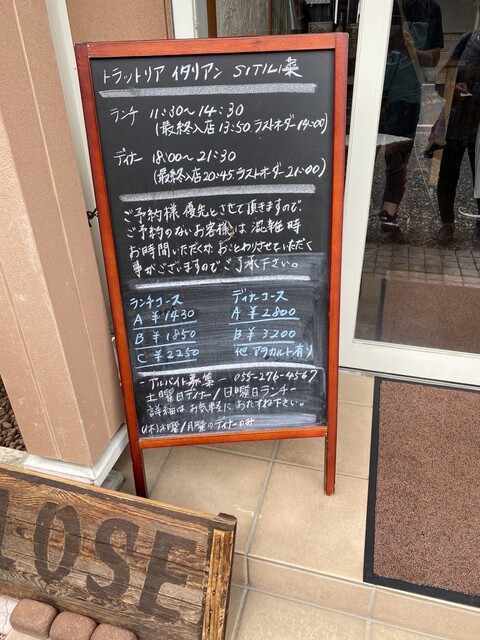 トラットリア イタリアン SITILI菜
ランチ 11:30〜14:30
(最終入店13:50 ラストオーダー14:00)
ディナー 18:00〜21:30
(最終入店20:45 ラストオーダー21:00)
ご予約様優先とさせて頂きますので、
ご予約のないお客様は混雑時
お時間いただくか、おことわりさせていただく
事がございますのでご了承下さい。
ランチコース ディナーコース
A ¥1430 A ¥2800
B ¥1850 B ¥3200
C ¥2250 他 アラカルト有り
-アルバイト募集- 055-276-4567
土曜日ディナー/日曜日ランチー
詳細はお気軽におたずね下さい。
(休)水曜/月曜のディナーのみ
LOSE